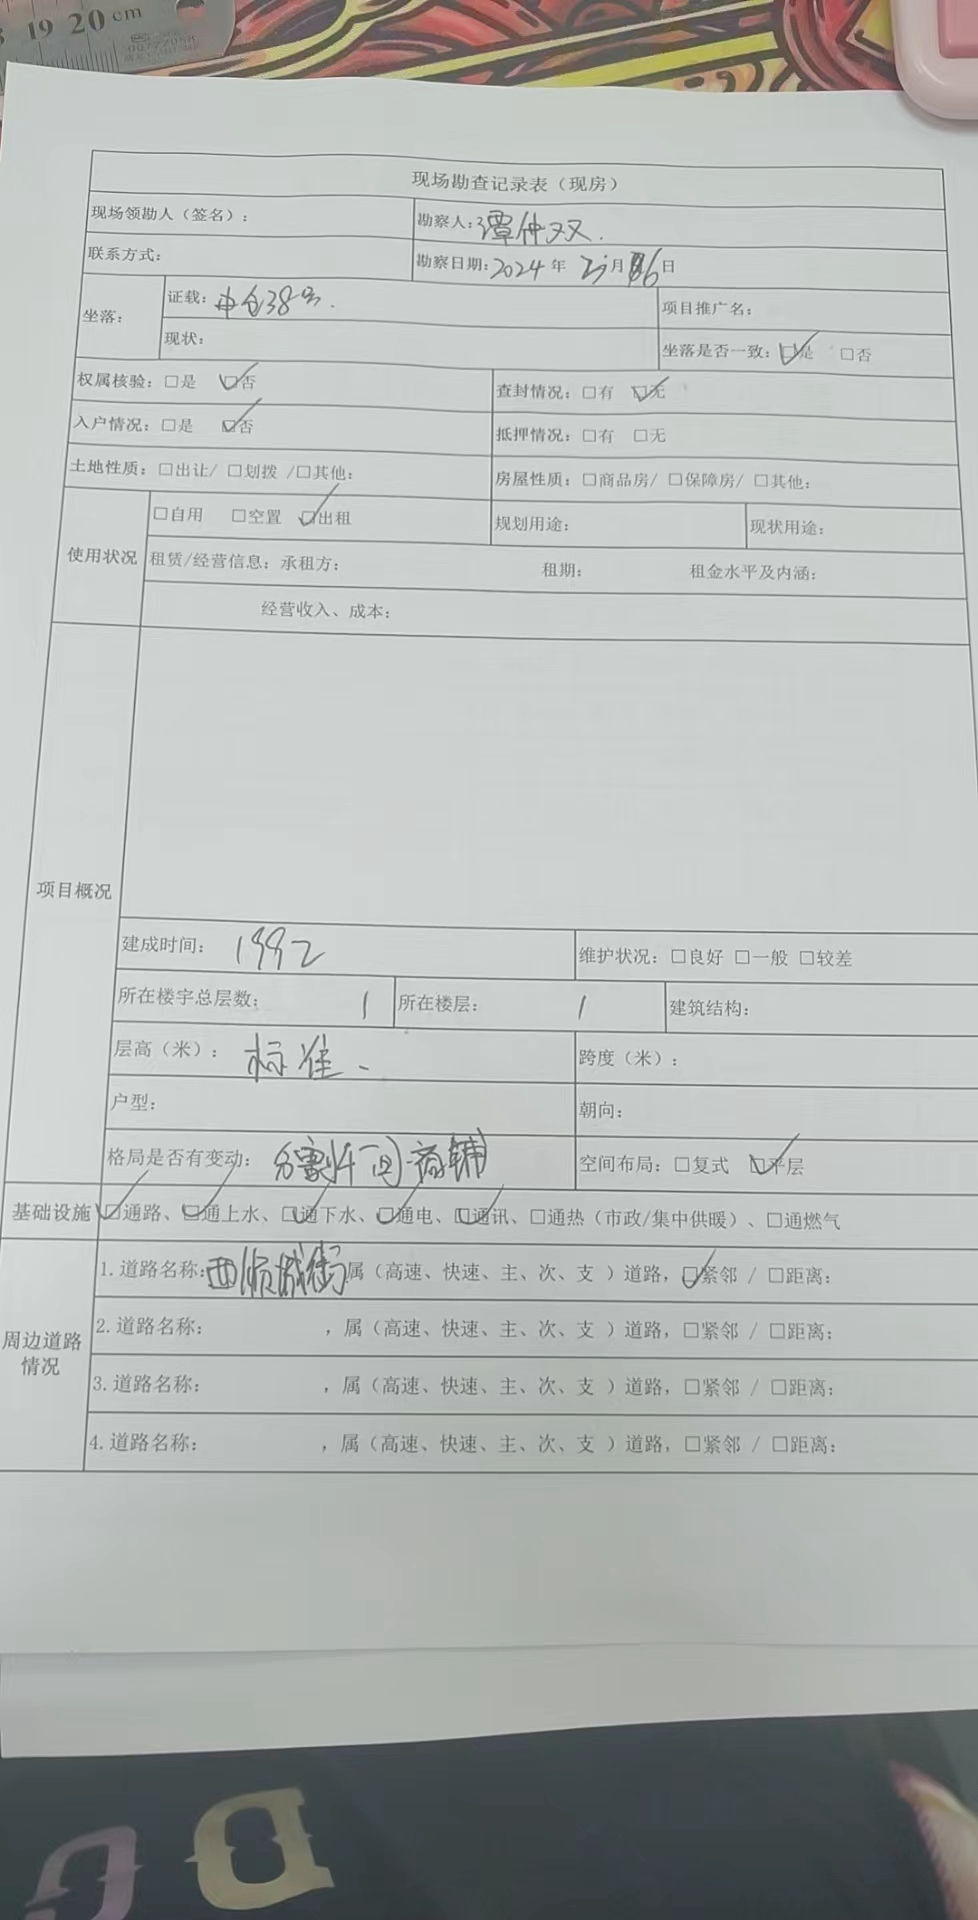 19 20 cm
现场勘查记录表（现房）
现场领勘人（签名）： 勘察人：谭仲双.
联系方式： 勘察日期：2024 年 月 6日
坐落： 证载： 38号. 项目推广名：
现状： 坐落是否一致：☑是 □否
权属核验：□是 ☑否 查封情况：□有 ☑无
入户情况：□是 ☑否 抵押情况：□有 □无
土地性质：□出让/ □划拨 /□其他： 房屋性质：□商品房/ □保障房/ □其他：
使用状况 □自用 □空置 ☑出租 规划用途： 现状用途：
租赁/经营信息：承租方： 租期： 租金水平及内涵：
经营收入、成本：
项目概况
建成时间： 1992 维护状况：□良好 □一般 □较差
所在楼宇总层数： 1 所在楼层： 1 建筑结构：
层高（米）： 标准 跨度（米）：
户型： 朝向：
格局是否有变动： 分割 间 商铺 空间布局：□复式 ☑平层
基础设施 ☑通路、☑通上水、☑通下水、☑通电、☑通讯、□通热（市政/集中供暖）、□通燃气
周边道路情况 1.道路名称：西顺城街 属（高速、快速、主、次、支 ）道路，☑紧邻 / □距离：
2.道路名称： ，属（高速、快速、主、次、支 ）道路，□紧邻 / □距离：
3.道路名称： ，属（高速、快速、主、次、支 ）道路，□紧邻 / □距离：
4.道路名称： ，属（高速、快速、主、次、支 ）道路，□紧邻 / □距离：